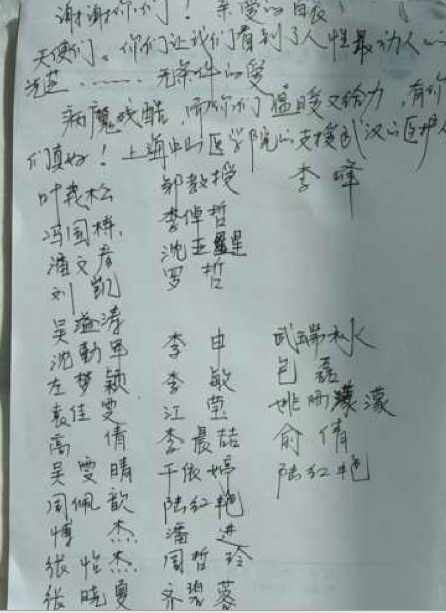 谢谢你们！亲爱的白衣
天使们。你们让我们看到了人性最动人的
光芒……无条件的爱
病魔残酷，而你们温暖又给力，有你
们真好！上海中山医学院的支援武汉的医护人
叶茂松 郭教授 李峰
冯国栋 李倬哲
潘文彦 沈亚星
刘凯 罗哲
吴溢涛
沈勤军 李申 武瑞水
左梦颖 李敏 包磊
袁佳雯 江莹 姚雨濛
高倩 李晨喆 俞倩
吴雯晴 于依婷 陆红艳
周佩歆 陆红艳
博杰 潘进
张怡杰 周哲玲
张晓夏 齐碧蓉